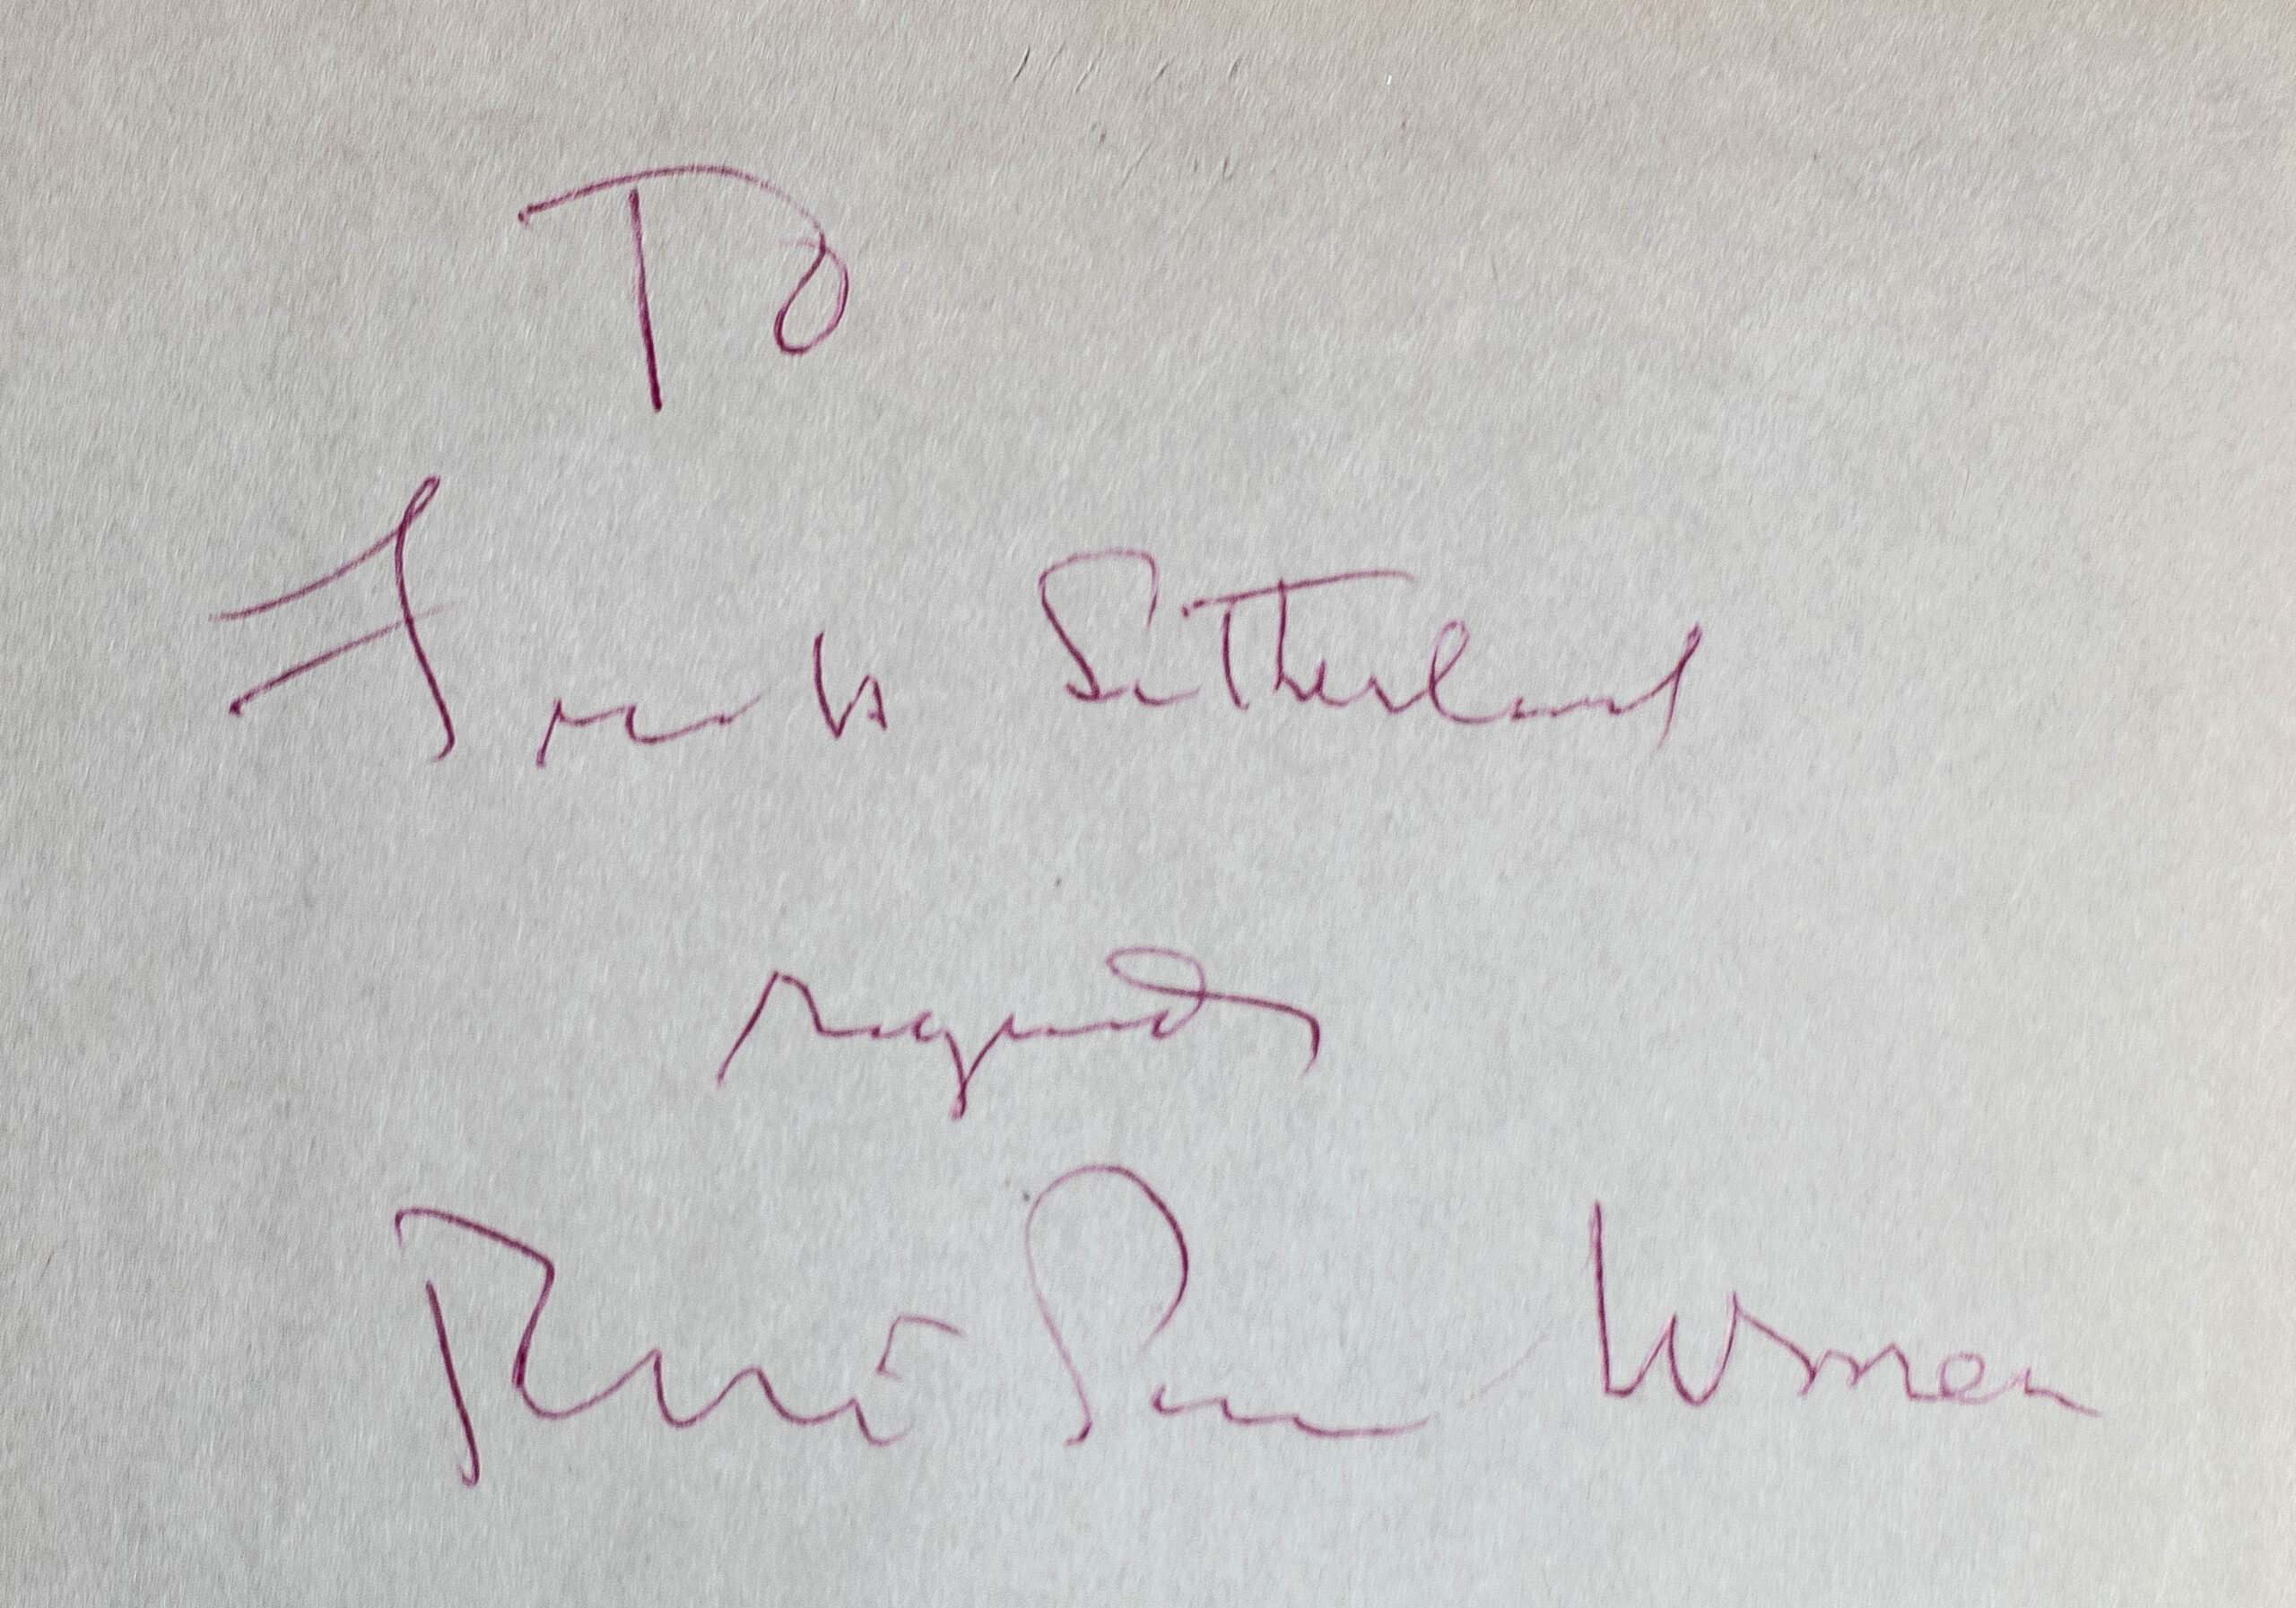 To
Frank Sutherland
regards
Robert Penn Warren